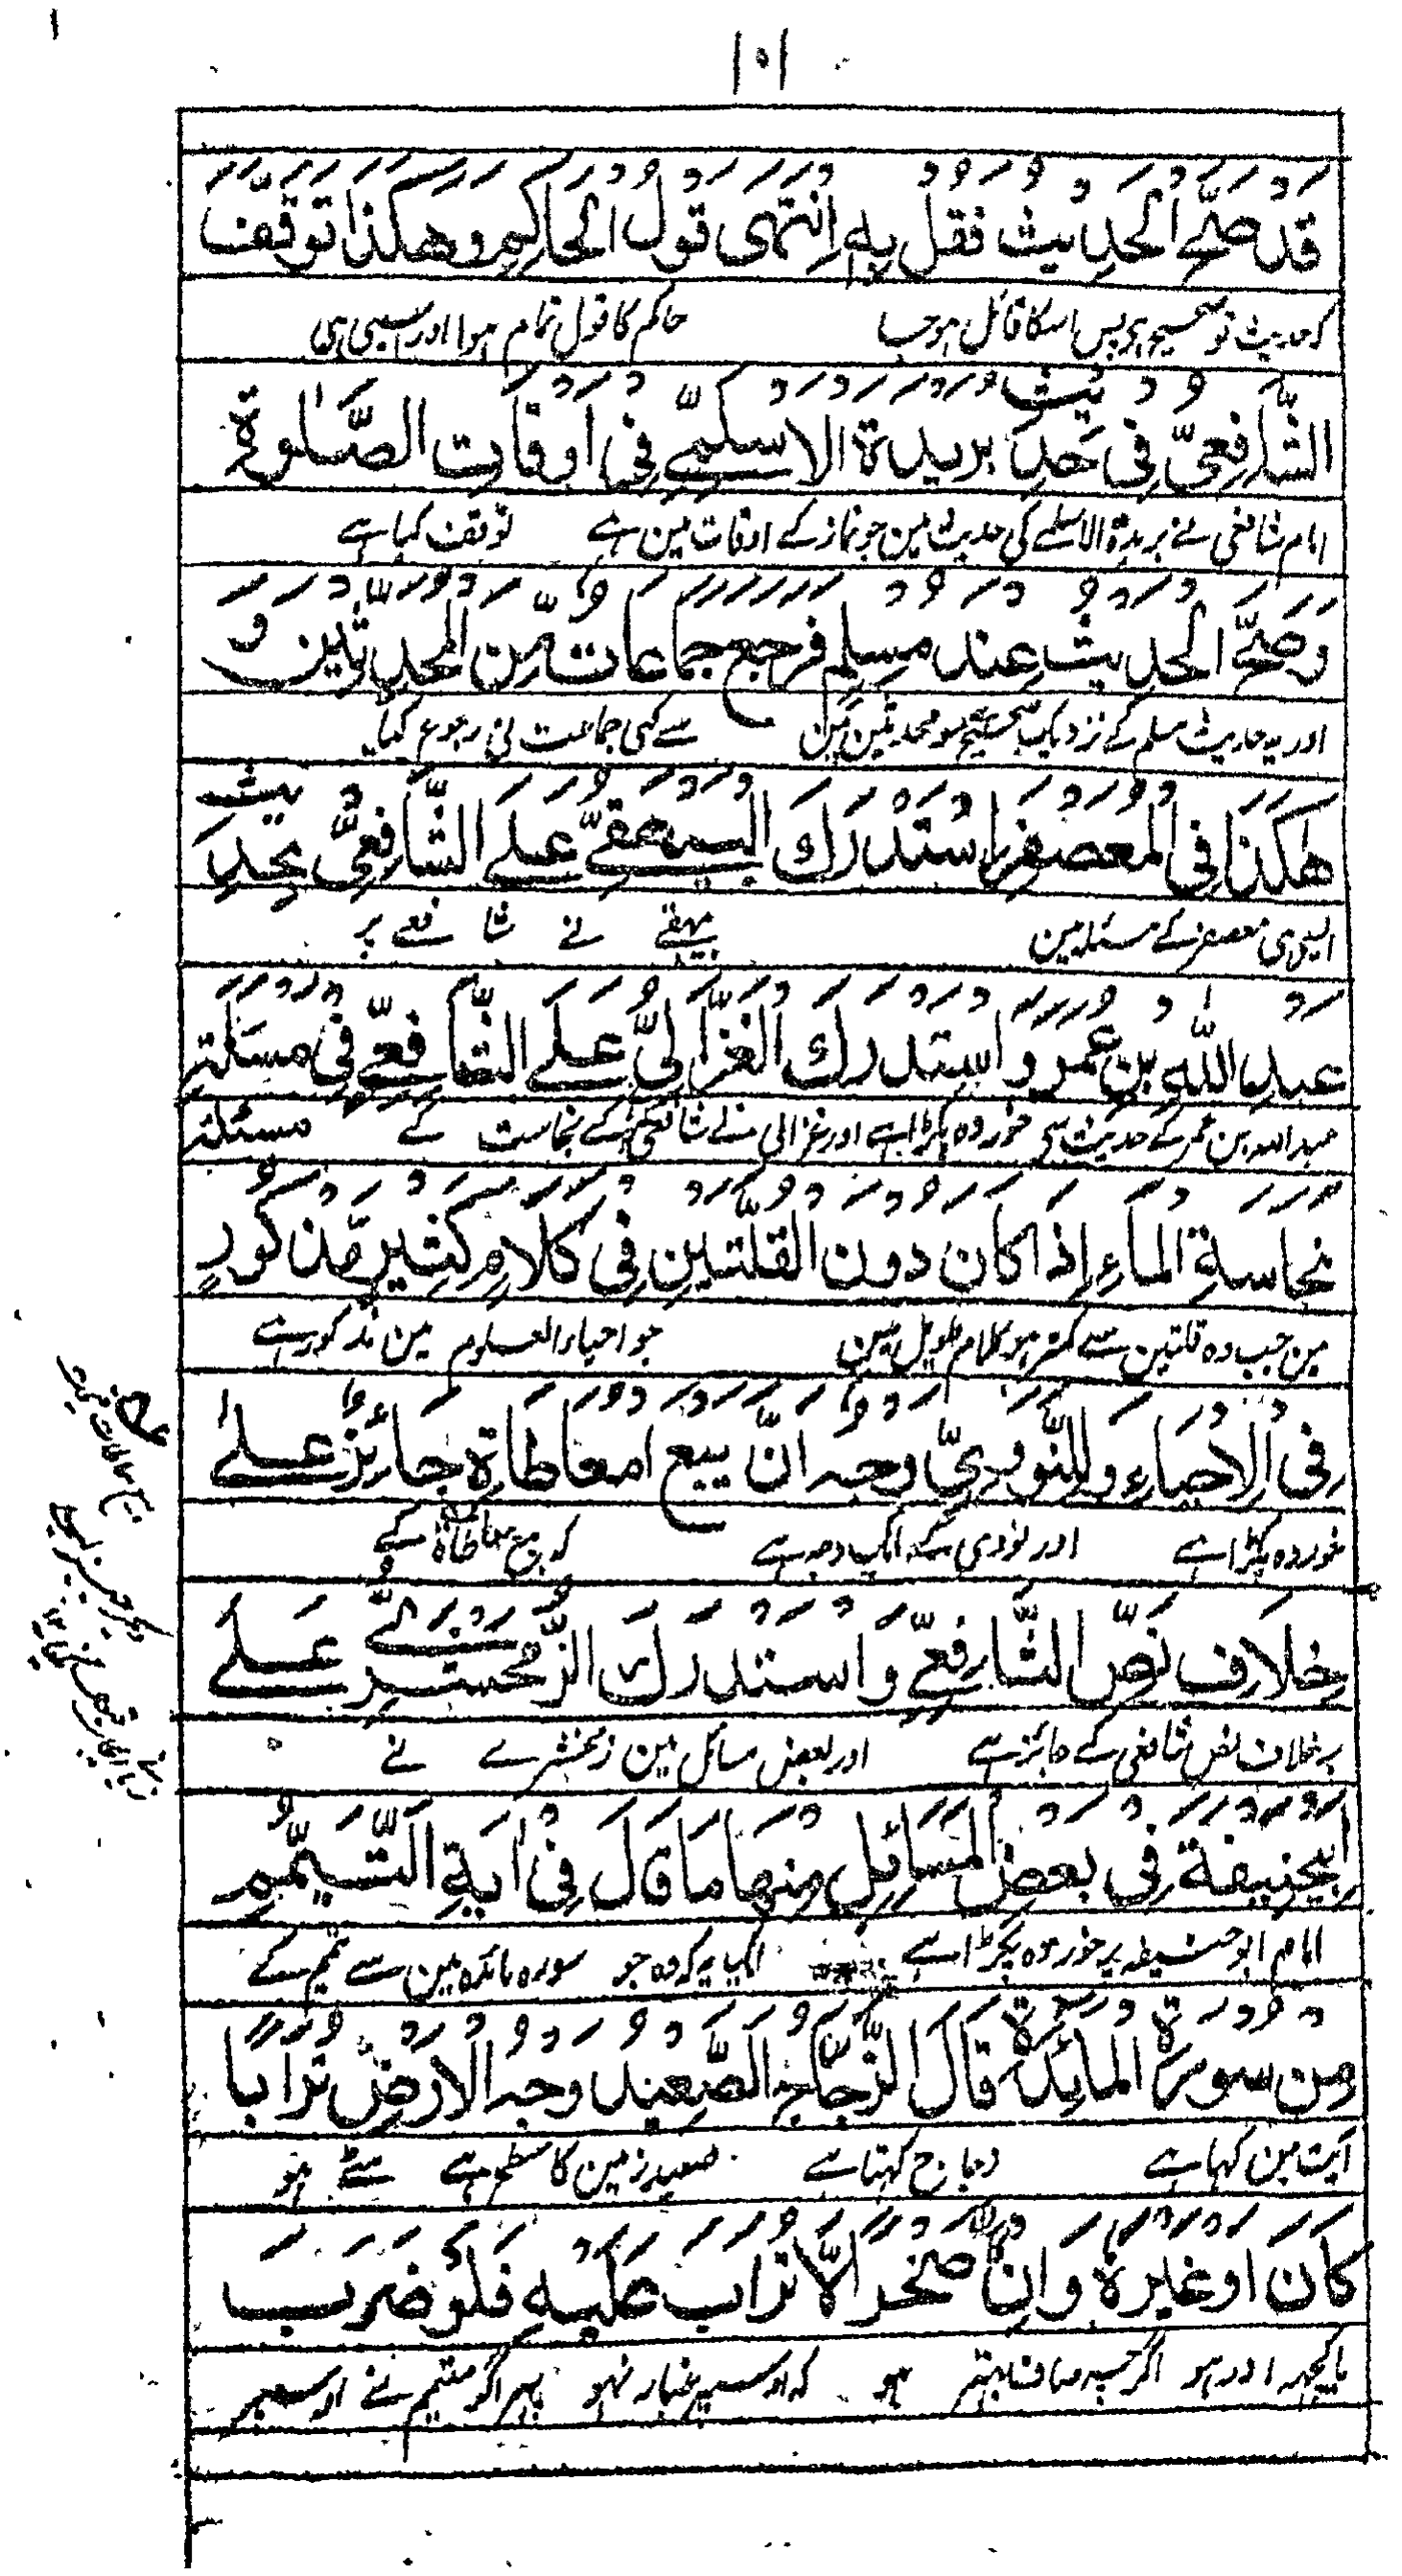 ١٠١
قَدْ صَحَّ الْحَدِيْثُ فَقُلْ بِهٖ اِنْتَهٰى قَوْلُ الْحَاكِمِ وَهٰكَذَا تَوَقَّفَ
كہ حدیث تو صحیح ہی پس اسکا قائل ہو جب حاکم کا قول تمام ہوا اور ایسی ہی
الشَّافِعِيُّ فِيْ حَدِيْثِ بُرَيْدَةَ الْاَسْلَمِيِّ فِيْ اَوْقَاتِ الصَّلٰوةِ
امام شافعی نے بریدۃ الاسلمے کی حدیث مین جو نماز کے اوقات مین ہے توقف کیا ہے
وَصَحَّ الْحَدِيْثُ عِنْدَ مُسْلِمٍ فَرَجَعَ جَمَاعَاتٌ مِّنَ الْمُحَدِّثِيْنَ وَ
اور یہ حدیث مسلم کے نزدیک صحیح ہے سو محدثین مین سے کئی جماعت نی رجوع کیا
هٰكَذَا فِي الْمُعَصْفَرِ اِسْتَدْرَكَ الْبَيْهَقِيُّ عَلَى الشَّافِعِيِّ بِحَدِيْثِ
ایسی ہی معصفر کے مسئلہ مین بیہقے نے شافعے پر
عَبْدِ اللّٰهِ بْنِ عُمَرَ وَاسْتَدْرَكَ الْغَزَّالِيُّ عَلَى الشَّافِعِيِّ فِيْ مَسْئَلَةِ
عبد اللہ بن عمر کے حدیث سی خوردہ پکڑا ہے اور غزالی نے شافعی پر کے نجاست کے مسئلہ
نَجَاسَةِ الْمَاءِ اِذَا كَانَ دُوْنَ الْقُلَّتَيْنِ فِيْ كَلَامٍ كَثِيْرٍ مَّذْكُوْرٍ
مین جب وہ قلتین سے کمتر ہو کلام طویل مین جو احیاء العلوم مین مذکور ہے
فِي الْاِحْيَاءِ وَلِلنَّوَوِيِّ وَجْهٌ اَنَّ بَيْعَ الْمُعَاطَاةِ جَائِزٌ عَلٰى
خوردہ پکڑا ہے اور نووی کے ایک وجہ ہے کہ بیع معاطاۃ کے
خِلَافِ نَصِّ الشَّافِعِيِّ وَاسْتَدْرَكَ الزَّمَخْشَرِيُّ عَلٰى
برخلاف نص شافعی کے جائز ہے اور بعض مسائل مین زمخشرے نے
اَبِيْحَنِيْفَةَ فِيْ بَعْضِ الْمَسَائِلِ مِنْهَا مَا قَالَ فِيْ اٰيَةِ التَّيَمُّمِ
امام ابو حنیفہ پر خوردہ پکڑا ہے ایک یہ کہ وہ جو سورہ مائدہ مین سے تیمم کے
مِنْ سُوْرَةِ الْمَائِدَةِ قَالَ الزَّجَّاجُ الصَّعِيْدُ وَجْهُ الْاَرْضِ تُرَابًا
آیت مین کہا ہے زجاج کہتا ہے صعید زمین کا سطح ہے مٹے ہو
كَانَ اَوْ غَيْرَهُ وَاِنْ كَانَ صَخْرًا لَّا تُرَابَ عَلَيْهِ فَلَوْ ضَرَبَ
یا کچہہ اور ہو اگرچہ صاف پتہر ہو کہ اوسپر غبار نہو پہر اگر متیمم نے اوسپر